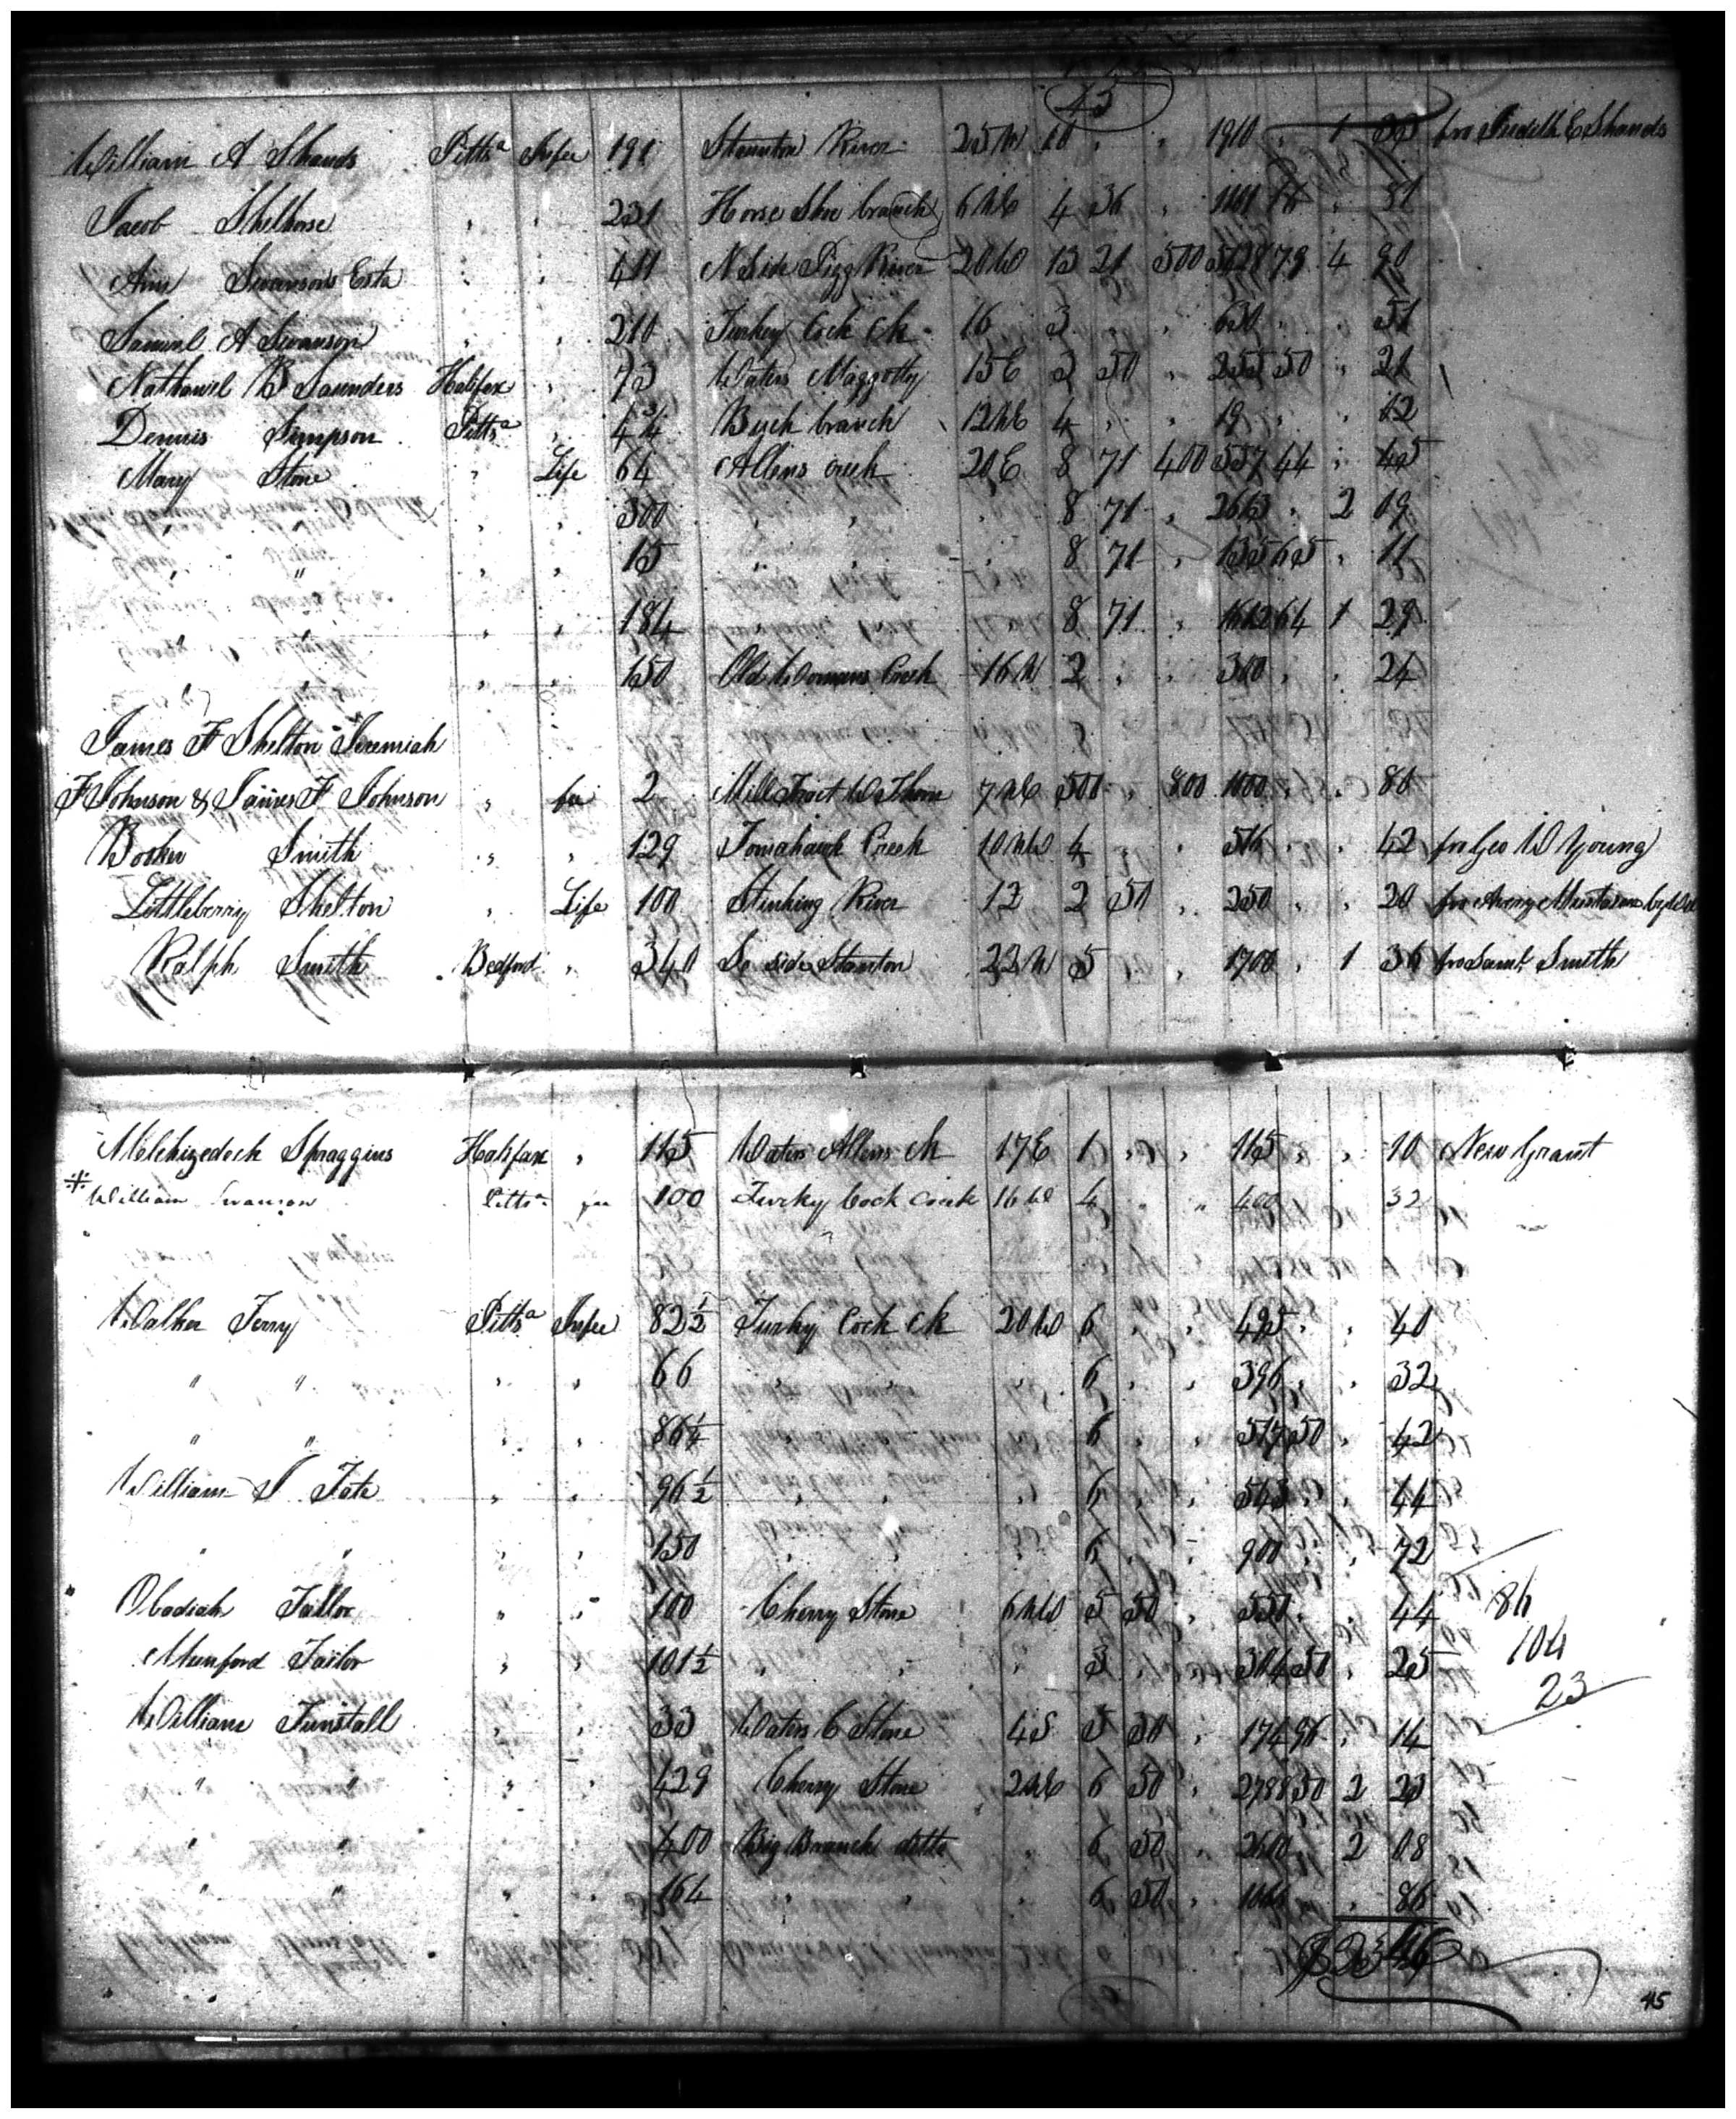 45
William A Shands Pittsa Infee 191 Staunton River 25 N 10 " " 1910 " 1 53 fro Susith C Shands
Jacob Shelhorse " " 231 Horse Shoe branch 6 NE 4 36 " " 81
Ann Swansons Esta " " 411 N Side Pigg River 20 W 13 21 500 5428 79 4 90
Samuel A Swanson " " 210 Turkey Cock Ck 16 3 " " 630 " " 51
Nathaniel B Saunders Halifax " 73 Waters Maggotty 15 E 3 50 " 255 50 " 21
Dennis Simpson Pittsa " Buch branch 12 NE 4 " " 19 " " 12
Mary Stone " Life 64 Allens Creek 20 E 8 71 400 557 44 " 45
" " 300 " " " 8 71 " 2613 " 2 09
" " " " 15 " " " 8 71 " 135 65 " 11
" " " " 184 " 8 71 " 1612 64 1 29
" " " " 150 Old Womans Creek 16 N 2 " " 300 " " 24
James F Shelton Jeremiah
F Johnson & James F Johnson " fee 2 Mill Tract W Thorn 7 NE 500 " 800 1000 " " 80
Booker Smith " " 129 Tomahawk Creek 10 NW 4 " " 516 " " 42 fro Geo W Young
Littleberry Shelton " Life 100 Stinking River 12 2 50 " 250 " " 20 fro Avery Mustain by Wd
Ralph Smith Bedford " 340 So side Stanton 22 N 5 " " 1700 " 1 36 fro Saml Smith
Melchizedeck Spraggins Halifax " 115 Waters Allens Ck 17 E 1 " " 115 " " 10 New Grant
* William Swanson Pittsa fee 100 Turky Cock Creek 16 W 4 " " 400 32
Walker Terry Pittsa Infee 82 1/2 Turky Cock Ck 20 W 6 " " 495 " " 40
" " " " 66 " " 6 " " 396 " " 32
" " " " 86 1/4 6 " " 517 50 " 42
William S Tate " " 96 1/2 " " " 6 " " 543 " " 44
" " " " 150 " " 6 " " 900 " " 72
Obadiah Tallor " " 100 Cherry Stone 6 NW 5 50 " 550 " " 44 86
Munford Tailor " " 101 1/2 " " " 3 " " 304 50 " 25 104
William Tunstall " " 33 Waters C Stone 4 S 5 30 " 174 96 " 14 23
" " " " 429 Cherry Stone 2 NE 6 50 " 2788 50 2 23
" " " 400 Big Branch ditto " 6 50 " 2600 " 2 08
" " " " 164 " " " 6 50 " 1066 " " 86
$23 46
45